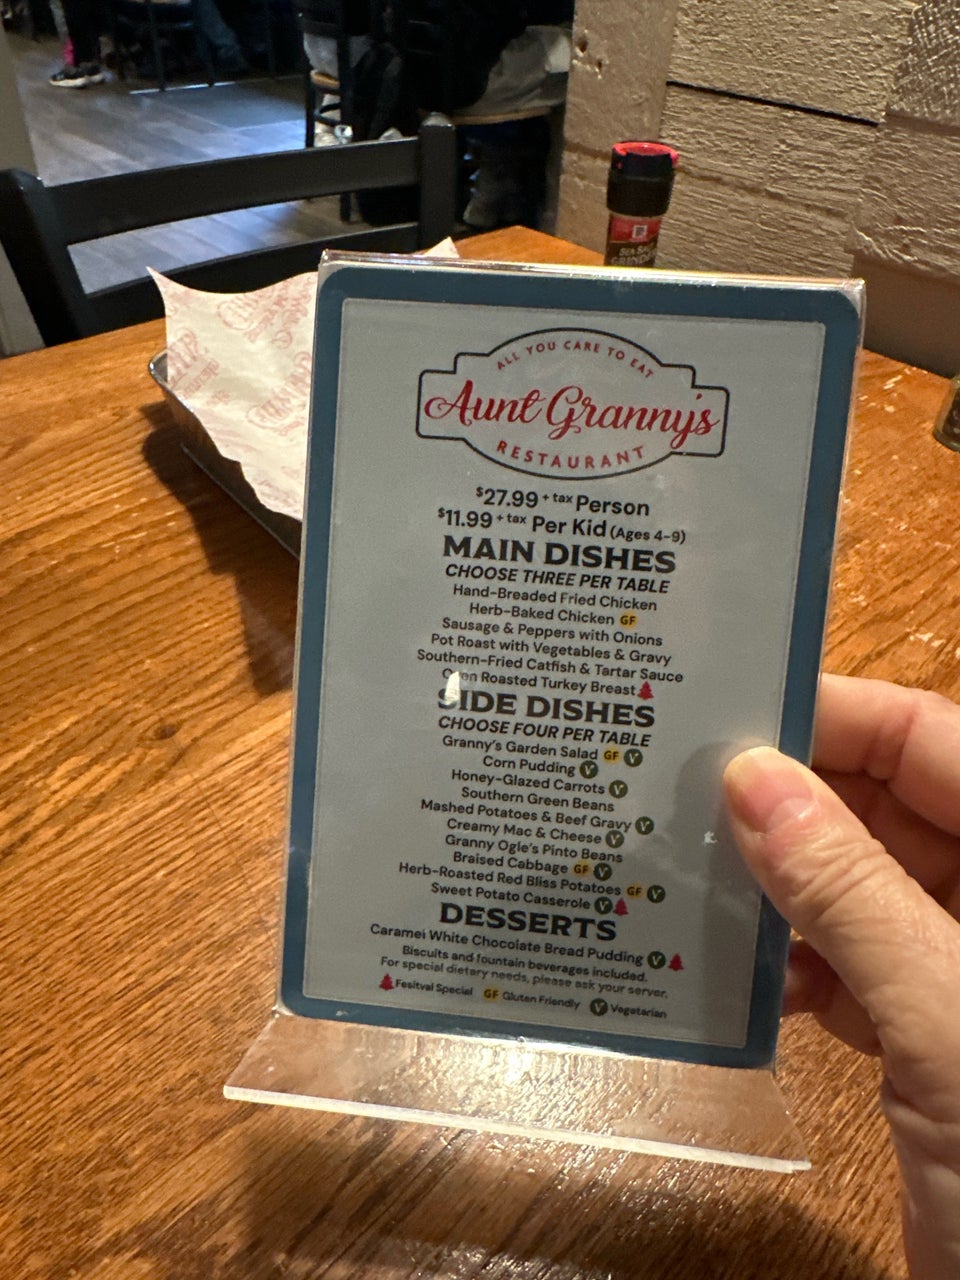 SEA SALT
GRINDER
ALL YOU CARE TO EAT
Aunt Granny's
RESTAURANT
$27.99 + tax Person
$11.99 + tax Per Kid (Ages 4-9)
MAIN DISHES
CHOOSE THREE PER TABLE
Hand-Breaded Fried Chicken
Herb-Baked Chicken GF
Sausage & Peppers with Onions
Pot Roast with Vegetables & Gravy
Southern-Fried Catfish & Tartar Sauce
Oven Roasted Turkey Breast
SIDE DISHES
CHOOSE FOUR PER TABLE
Granny's Garden Salad GF V
Corn Pudding V
Honey-Glazed Carrots V
Southern Green Beans
Mashed Potatoes & Beef Gravy V
Creamy Mac & Cheese V
Granny Ogle's Pinto Beans
Braised Cabbage GF V
Herb-Roasted Red Bliss Potatoes GF V
Sweet Potato Casserole V
DESSERTS
Caramel White Chocolate Bread Pudding V
Biscuits and fountain beverages included.
For special dietary needs, please ask your server.
Fesitval Special GF Gluten Friendly V Vegetarian